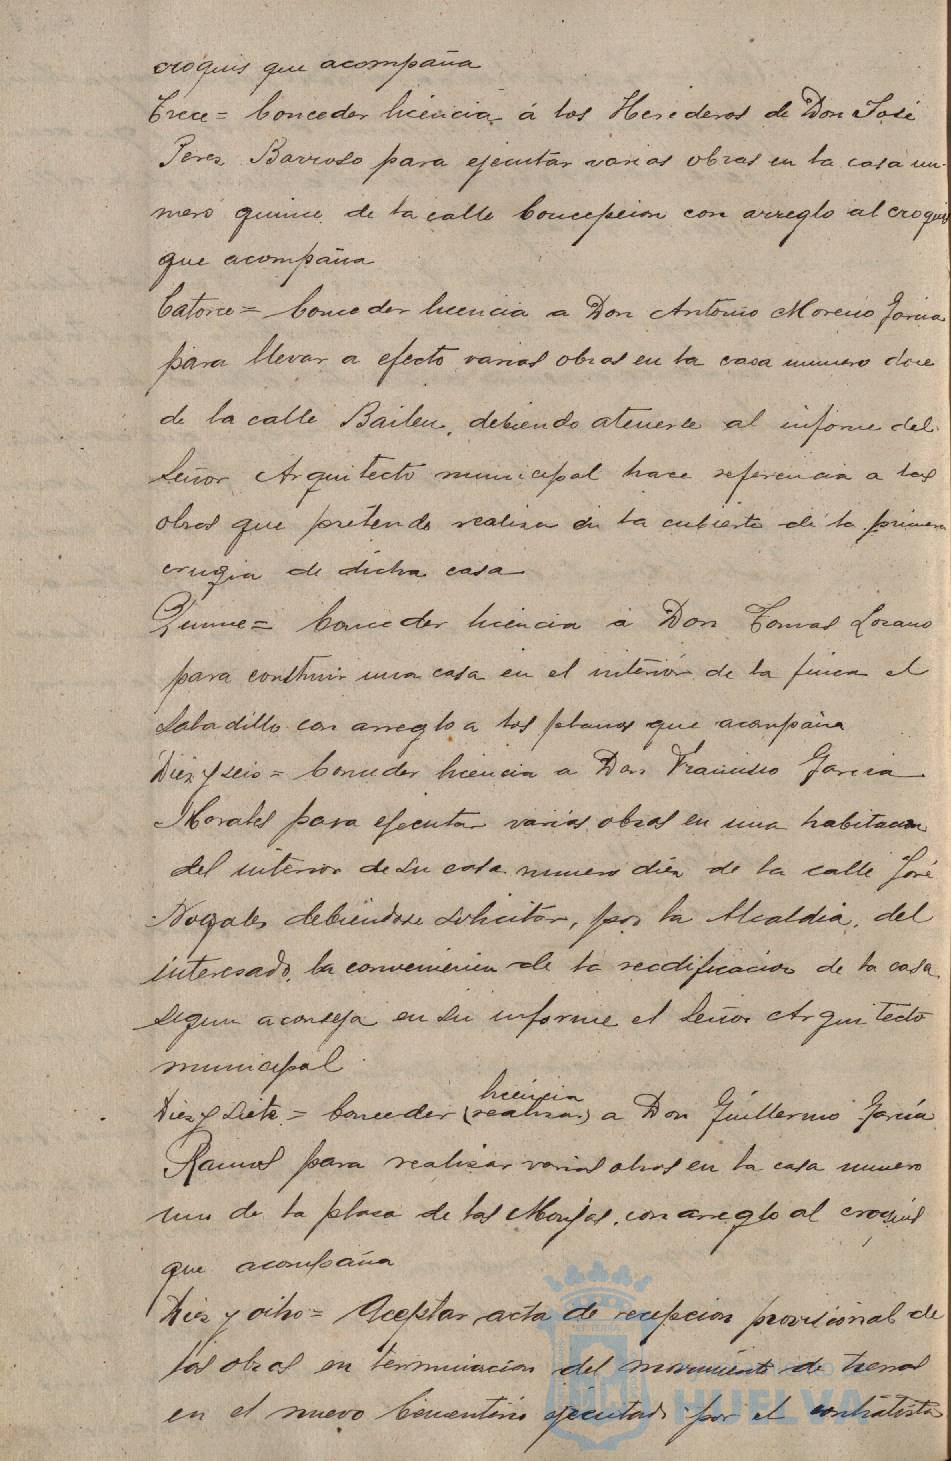 croquis que acompaña
Trece = Conceder licencia á los Herederos de Don José
Perez Barroso para ejecutar varias obras en la casa nu-
mero quince de la calle Concepcion con arreglo al croquis
que acompaña
Catorce = Conceder licencia a Don Antonio Moreno Garcia
para llevar a efecto varias obras en la casa numero doce
de la calle Bailen, debiendo atenerse al informe del
Señor Arquitecto municipal hace referencia a las
obras que pretende realizar en la cubierta de la primera
crugia de dicha casa
Quince = Conceder licencia á Don Tomas Lozano
para construir una casa en el interior de la finca el
Saladillo con arreglo a los planos que acompaña
Diez y seis = Conceder licencia a Don Francisco Garcia
Morales para ejecutar varias obras en una habitacion
del interior de su casa numero diez de la calle José
Nogales debiendose solicitar, por la Alcaldia, del
interesado, la conveniencia de la reedificacion de la casa
segun aconseja en su informe el Señor Arquitecto
municipal
licencia
Diez y siete = Conceder (realizar) a Don Guillermo García
Ramos para realizar varias obras en la casa numero
uno de la plaza de las Monjas, con arreglo al croquis
que acompaña
Diez y ocho = Aceptar acta de recepcion provisional de
las obras en terminacion del movimiento de tierras
en el nuevo Cementerio ejecutado por el contratista
HUELVA